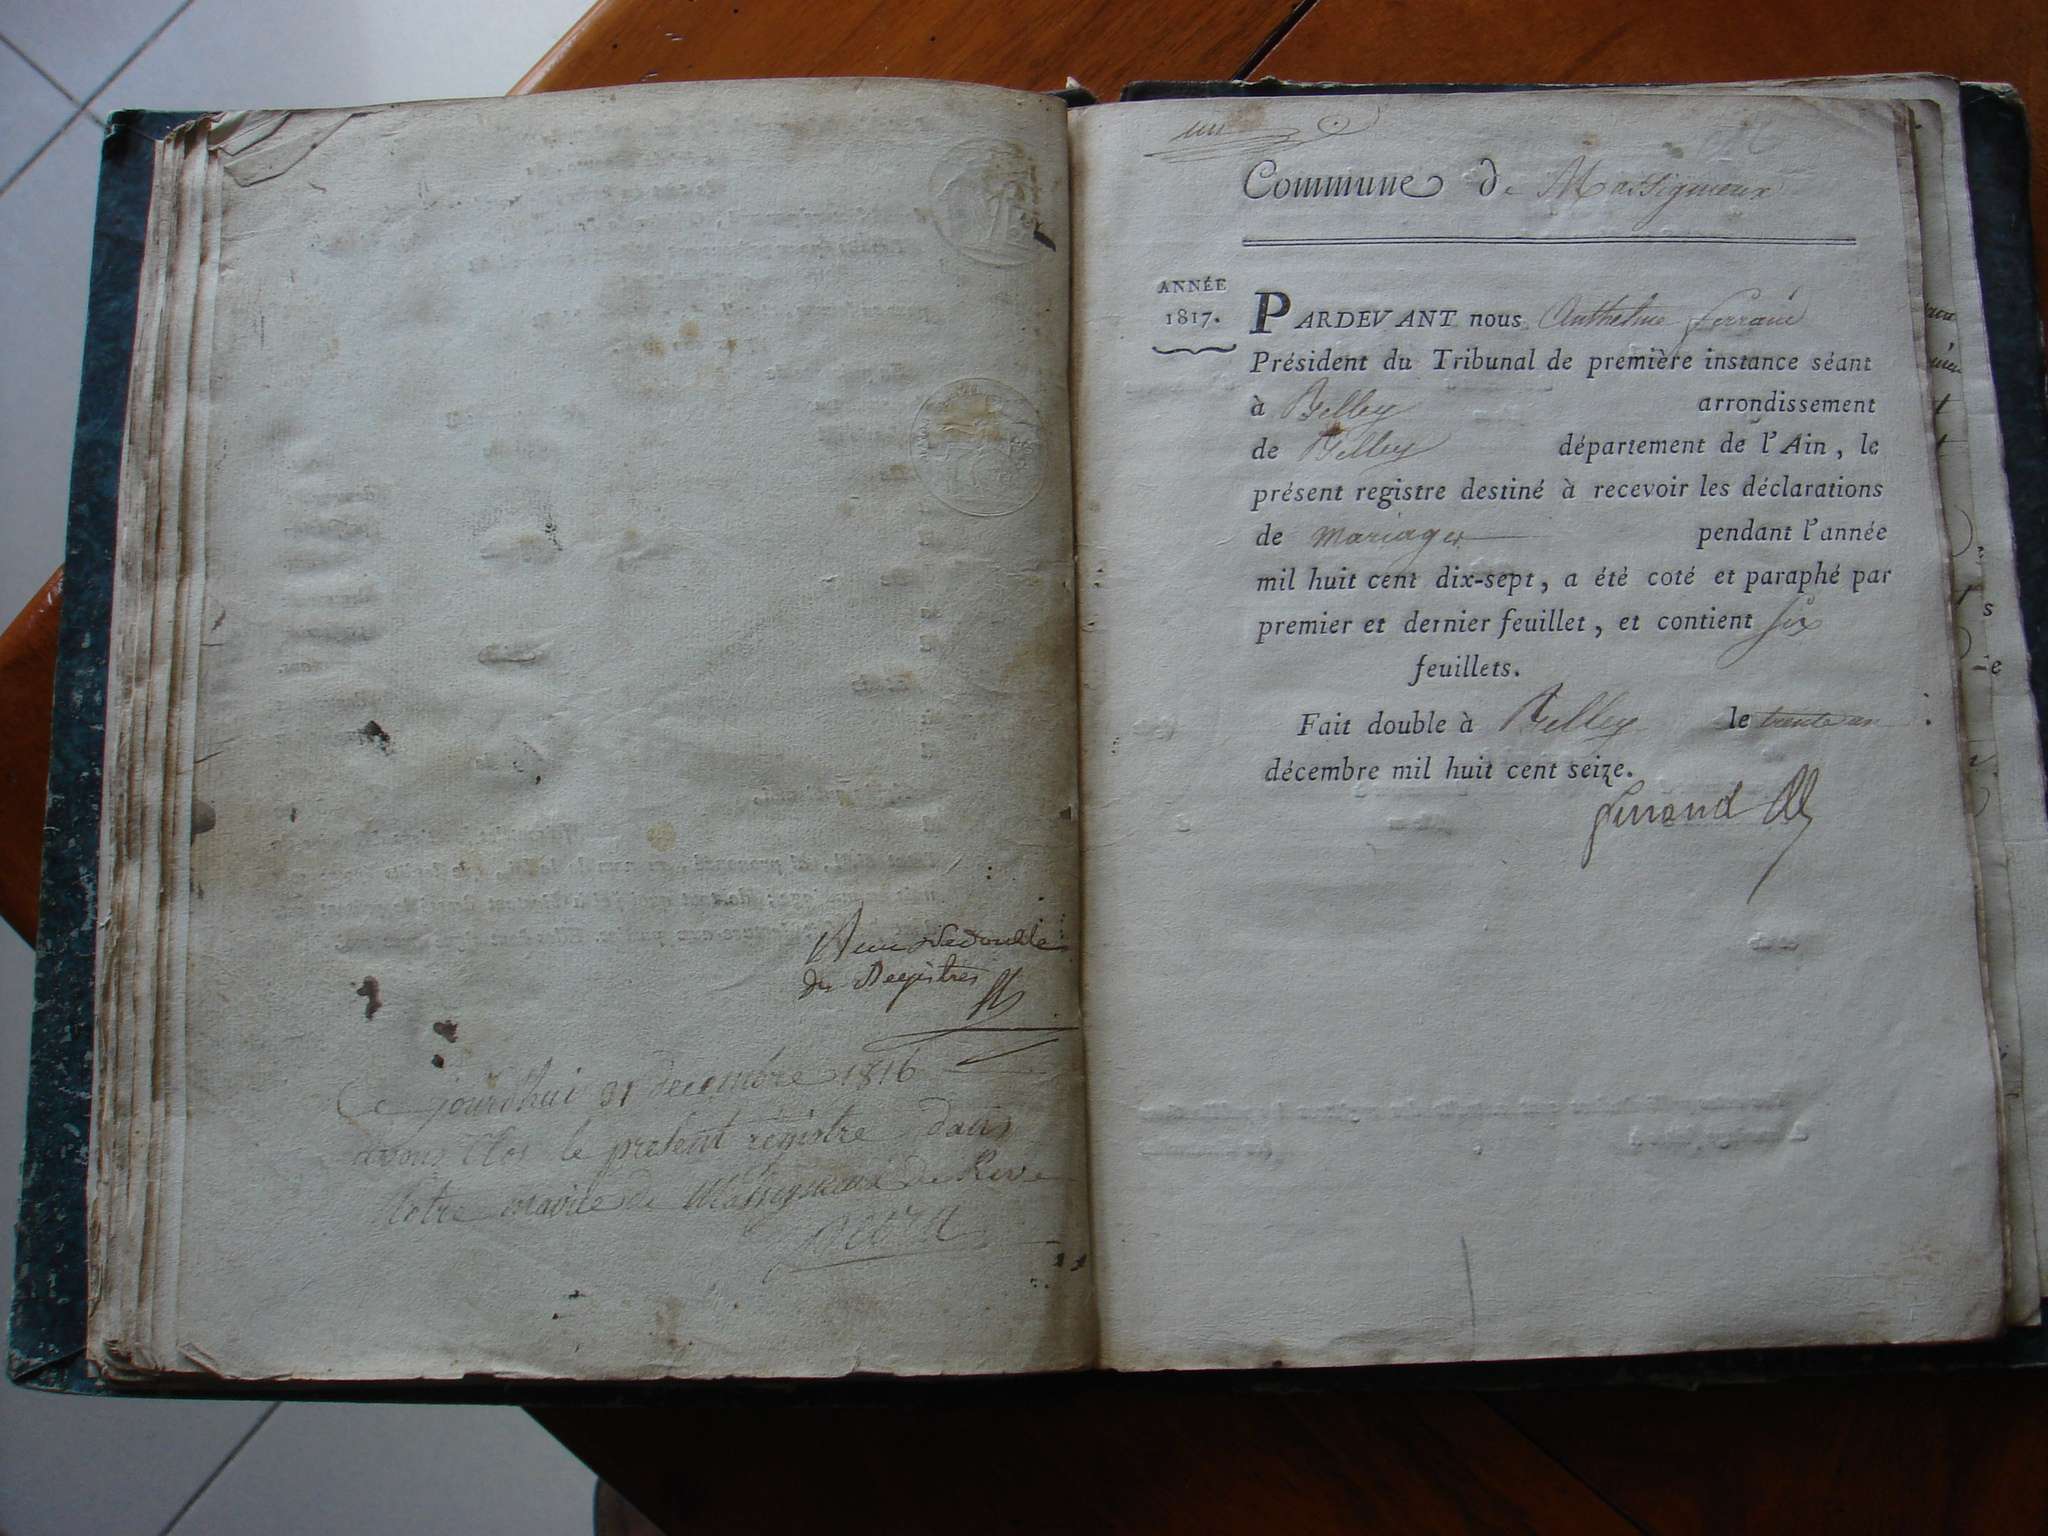 des Registres
Ce jourdhui 31 decembre 1816
avons Clos le present registre dans
Notre mairie de Massigneux de Rive
un
Commune de Massigneux
ANNÉE
1817.
PARDEVANT nous Anthelme Ferrand
Président du Tribunal de première instance séant
à Belley arrondissement
de Belley département de l'Ain, le
présent registre destiné à recevoir les déclarations
de mariages pendant l'année
mil huit cent dix-sept, a été coté et paraphé par
premier et dernier feuillet, et contient six
feuillets.
Fait double à Belley le trente un
décembre mil huit cent seize.
Ferrand